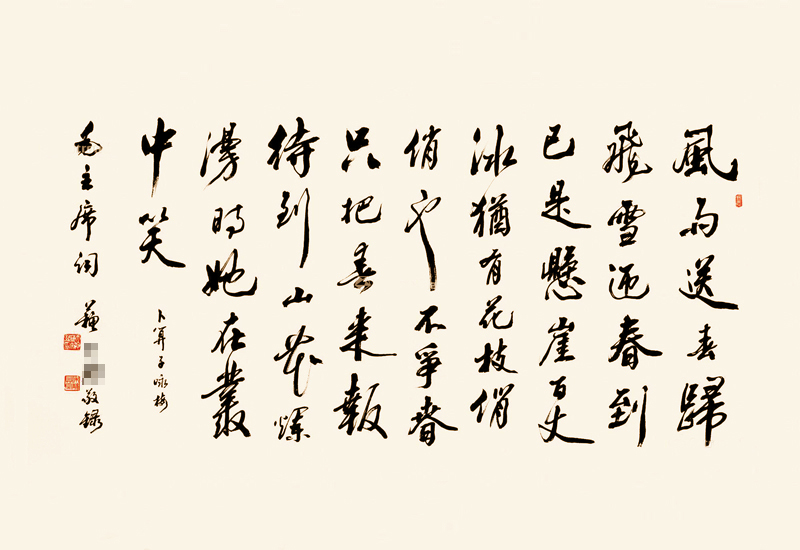 風雨送春歸
飛雪迎春到
已是懸崖百丈
冰猶有花枝俏
俏也不爭春
只把春来報
待到山花爛
漫時她在叢
中笑
卜算子咏梅
毛主席词 蘇 敬錄